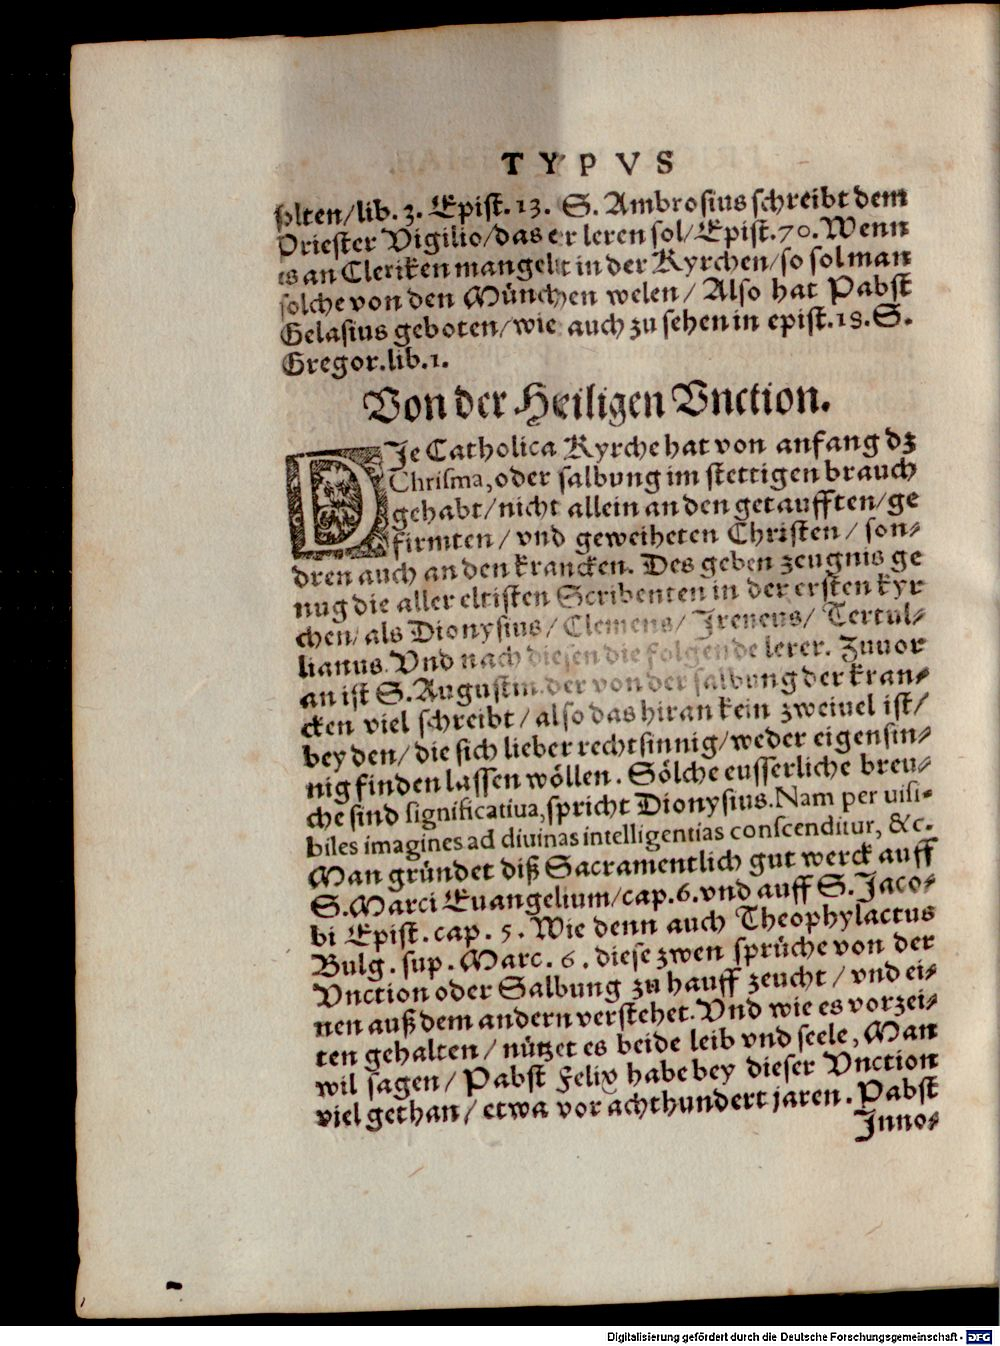 TYPVS
solten/lib. 3. Epist. 13. S. Ambrosius schreibt dem
Priester Vigilio/das er leren sol/Epist.70.Wenn
es an Cleriken mangelt in der Kyrchen/so sol man
solche von den München welen/ Also hat Pabst
Gelasius geboten/wie auch zu sehen in epist.18.S.
Gregor.lib.1.
Von der Heiligen Vnction.
DJe Catholica Kyrche hat von anfang dz
Chrisma,oder salbung im stettigen brauch
gehabt/nicht allein an den getaufften/ge
firmten/ vnd geweiheten Christen/ son-
dren auch an den krancken. Des geben zeugnis ge
nug die aller eltisten Scribenten in der ersten kyr
chen/als Dionysius/ Clemens/ Jreneus/ Tertul-
lianus.Vnd nach diesen die folgende lerer. Zuuor
an ist S.Augustin.der von der salbung der kran-
cken viel schreibt/also das hiran kein zweiuel ist/
bey den/die sich lieber rechtsinnig/weder eigensin-
nig finden lassen wöllen. Sölche eusserliche breu-
che sind significatiua,spricht Dionysius.Nam per uisi-
biles imagines ad diuinas intelligentias conscenditur, &c.
Man gründet diß Sacramentlich gut werck auff
S.Marci Euangelium/cap.6.vnd auff S.Jaco-
bi Epist.cap. 5. Wie denn auch Theophylactus
Bulg. sup. Marc. 6. diese zwen sprüche von der
Vnction oder Salbung zu hauff zeucht/ vnd ei-
nen auß dem andern verstehet.Vnd wie es vorzei-
ten gehalten/ nützet es beide leib vnd seele, Man
wil sagen/ Pabst Felix habe bey dieser Vnction
viel gethan/ etwa vor achthundert jaren. Pabst
Jnno-
Digitalisierung gefördert durch die Deutsche Forschungsgemeinschaft - DFG